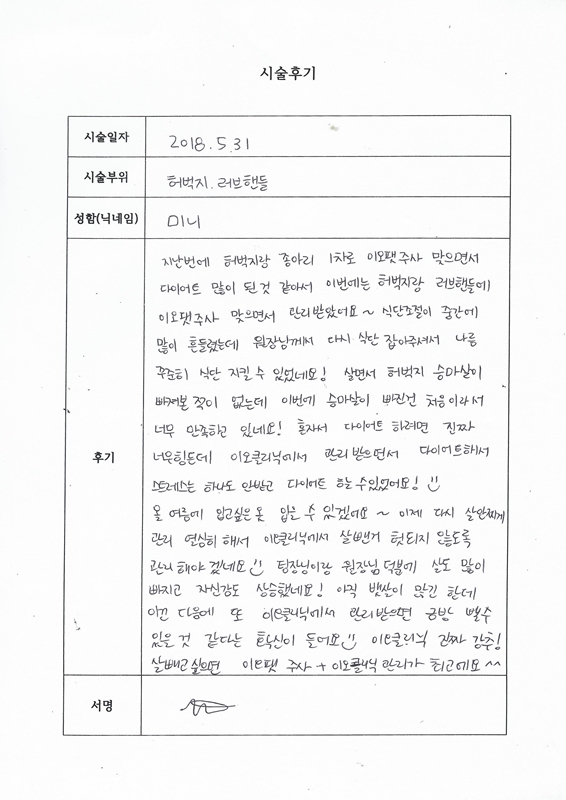 시술후기
시술일자 2018.5.31
시술부위 허벅지.러브핸들
성함(닉네임) 미니
지난번에 허벅지랑 종아리 1차로 이오팻주사 맞으면서
다이어트 많이 된 것 같아서 이번에는 허벅지랑 러브핸들에
이오팻주사 맞으면서 관리받았어요~ 식단조절이 중간에
많이 흔들렸는데 원장님께서 다시 식단 잡아주셔서 나름
꾸준히 식단 지킬 수 있었네요! 살면서 허벅지 승마살이
빠져본 적이 없는데 이번에 승마살이 빠진건 처음이라서
너무 만족하고 있네요! 혼자서 다이어트 하려면 진짜
후기
너무힘든데 이오클리닉에서 관리받으면서 다이어트해서
스트레스는 하나도 안받고 다이어트 할 수있었어요!
올 여름에 입고싶은 옷 입을 수 있겠어요~ 이제 다시 살안찌게
관리 열심히 해서 이오클리닉에서 살뺀거 헛되지 않도록
관리해야겠네요 팀장님이랑 원장님 덕분에 살도 많이
빠지고 자신감도 상승했네요! 아직 뱃살이 많긴 한데
이건 다음에 또 이오클리닉에서 관리받으면 금방 뺄수
있을 것 같다는 확신이 들어요 이오클리닉 진짜 강추!
살빼고싶으면 이오팻 주사 + 이오클리닉 관리가 최고에요^^
서명